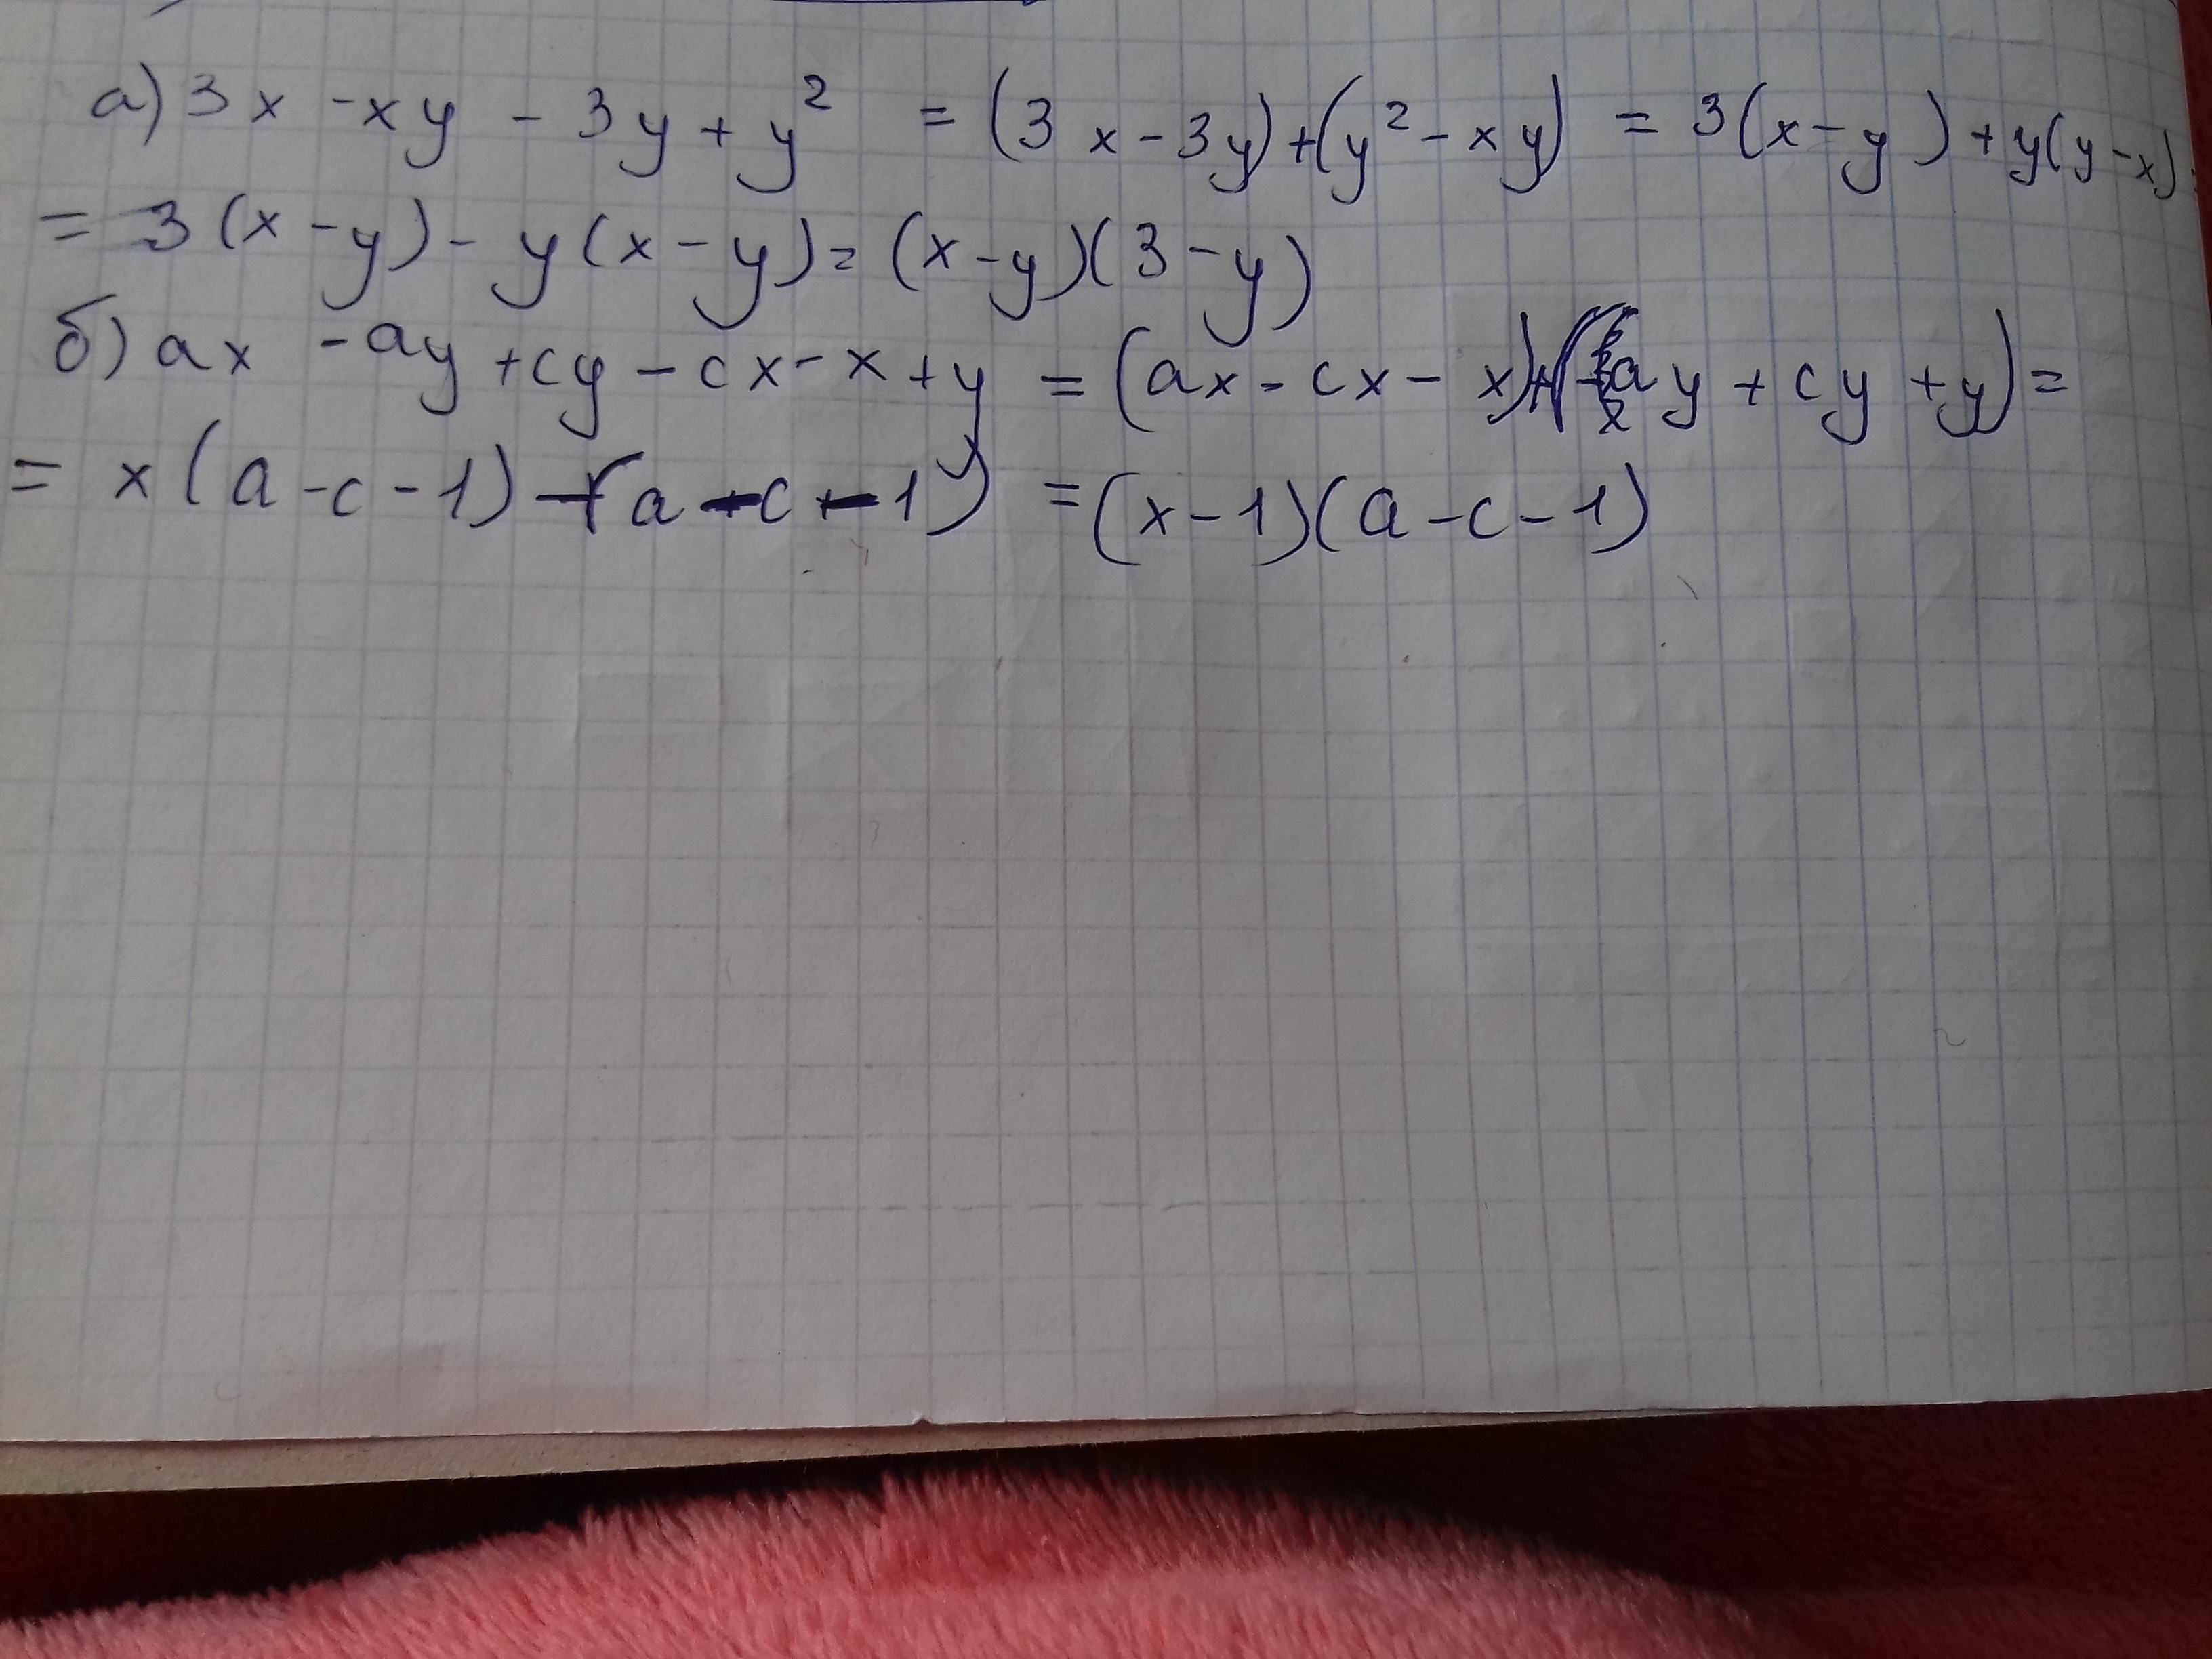 а) 3x - xy - 3y + y² = (3x - 3y) + (y² - xy) = 3(x - y) + y(y - x) =
= 3(x - y) - y(x - y) = (x - y)(3 - y)
б) ax - ay + cy - cx - x + y = (ax - cx - x) + (-ay + cy + y) =
= x(a - c - 1) - (a - c - 1) = (x - 1)(a - c - 1)